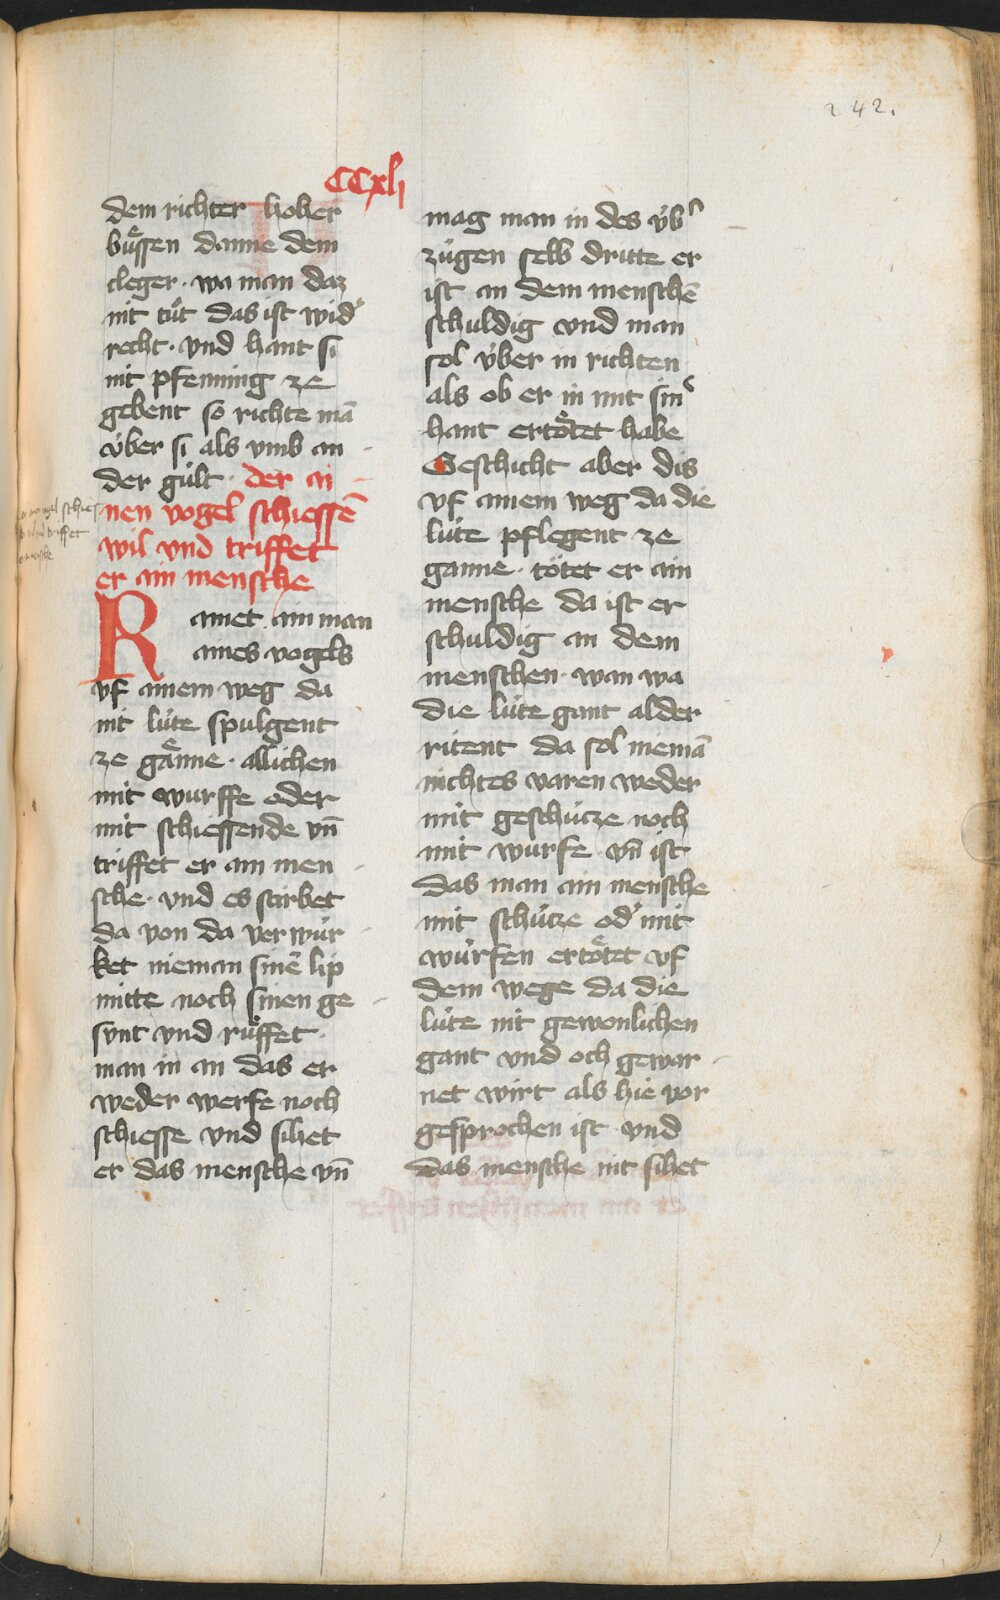 242.
CCxlj
dem richter hoher
bůssen danne dem
cleger · wa man daz
nit tůt das ist wid᾽
recht · vnd hant si
nit pfenning ze
gebent so richte mā
v́ber si als vmb an
der gúlt · der ai
nen vogel schiessē
wil vnd triffet
er ain mensche
Ramet ain man
aines vogels
vf ainem weg da
nit lúte spulgent
ze gånne · allichen
mit wurffe oder
mit schiessende vn̄
triffet er ain men
sche · vnd es stirbet
da von da verwúr
ket nieman sinē lip
mitte noch sinen ge
synt vnd růffet ·
man in an das er
weder werfe noch
schiesse vnd sihet
er das mensche vn̄
mag man in des v́b᾽
zúgen selb dritte er
ist an dem menschē
schuldig vnd man
sol v́ber in richten
als ob er in mit sin᾽
hant ertötet habe
Geschicht aber dis
vf ainem weg da die
lúte pflegent ze
ganne · tötet er ain
mensche da ist er
schuldig an dem
menschen · wan wa
die lúte gant alder
ritent da sol niemā
nichtes varen weder
mit geschúcze noch
mit wurfe vn̄ ist
das man ain mensche
mit schúcze od᾽ mit
wúrfen ertötet vf
dem wege da die
lúte nit gewonlichen
gant vnd och gewar
net wirt als hie vor
gesprochen ist vnd
das mensche nit sihet